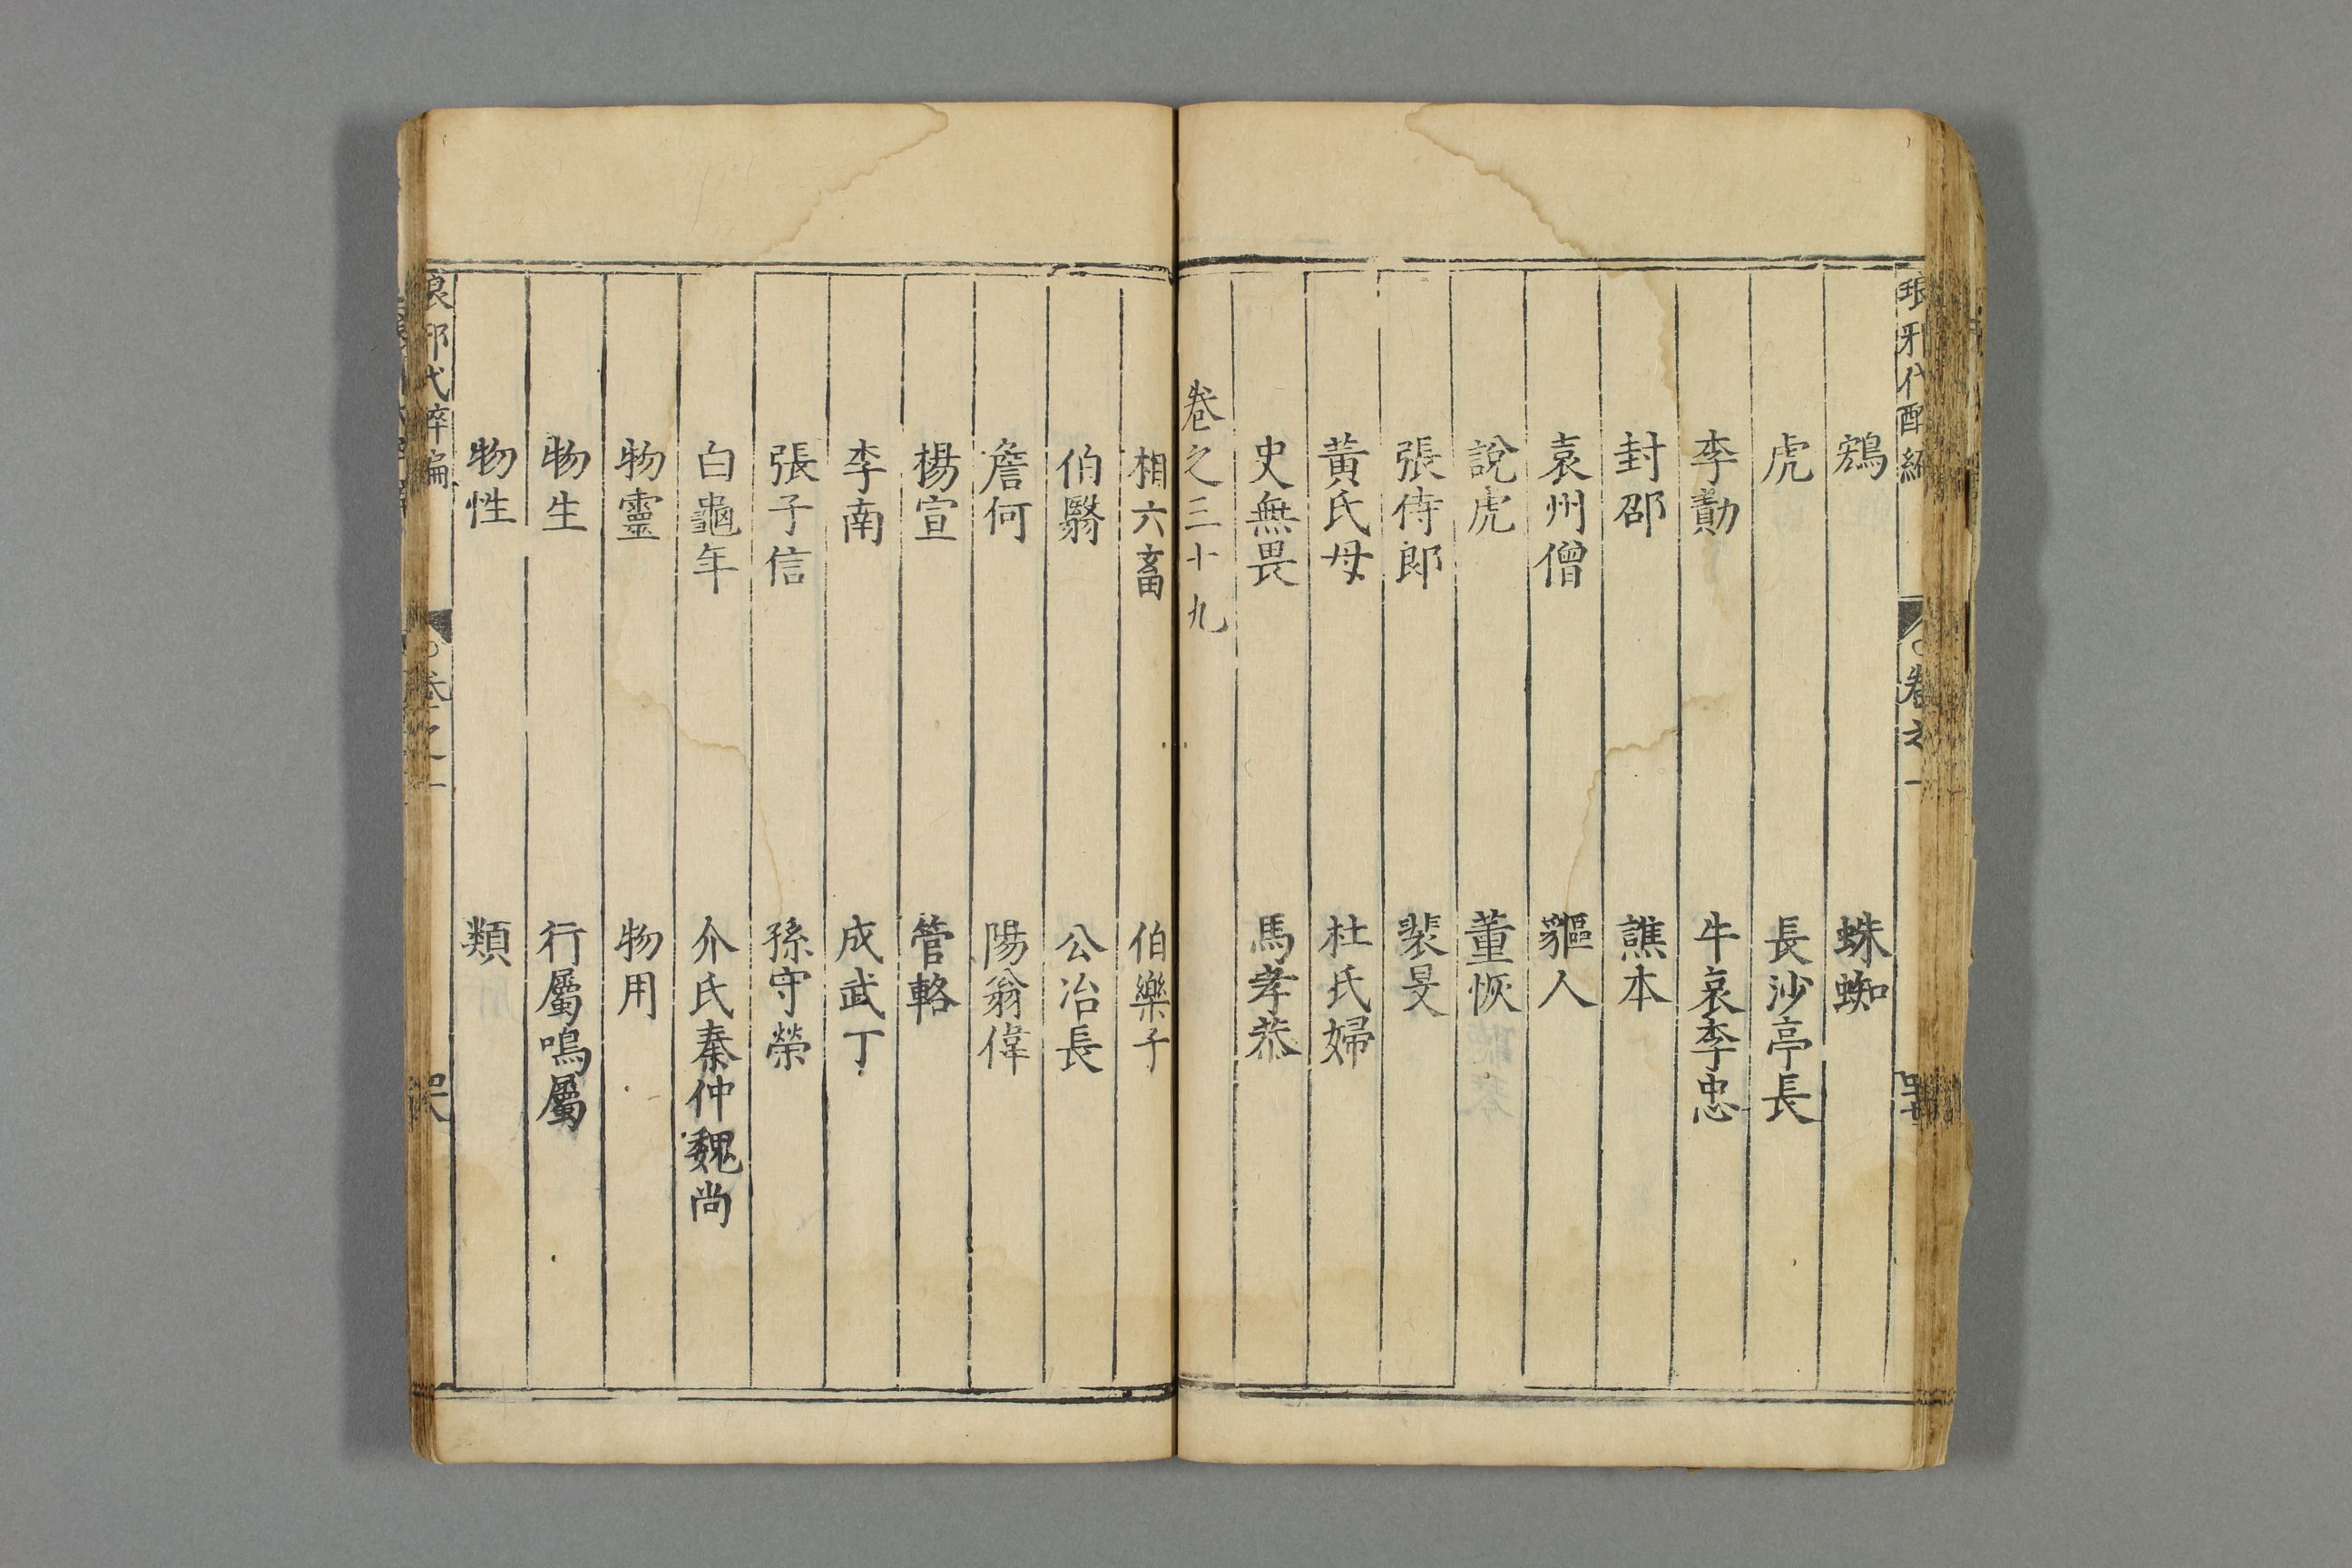 鵶　蛛蜘
虎　長沙亭長
李勣　牛哀李忠
封邵　譙本
袁州僧　貙人
說虎　董恢
張侍郎　裴旻
黃氏母　杜氏婦
史無畏　馬孝恭
卷之三十九
相六畜　伯樂子
伯翳　公冶長
詹何　陽翁偉
楊宣　管輅
李南　成武丁
張子信　孫守榮
白龜年　介氏秦仲魏尚
物靈　物用
物生　行屬鳴屬
物性　類